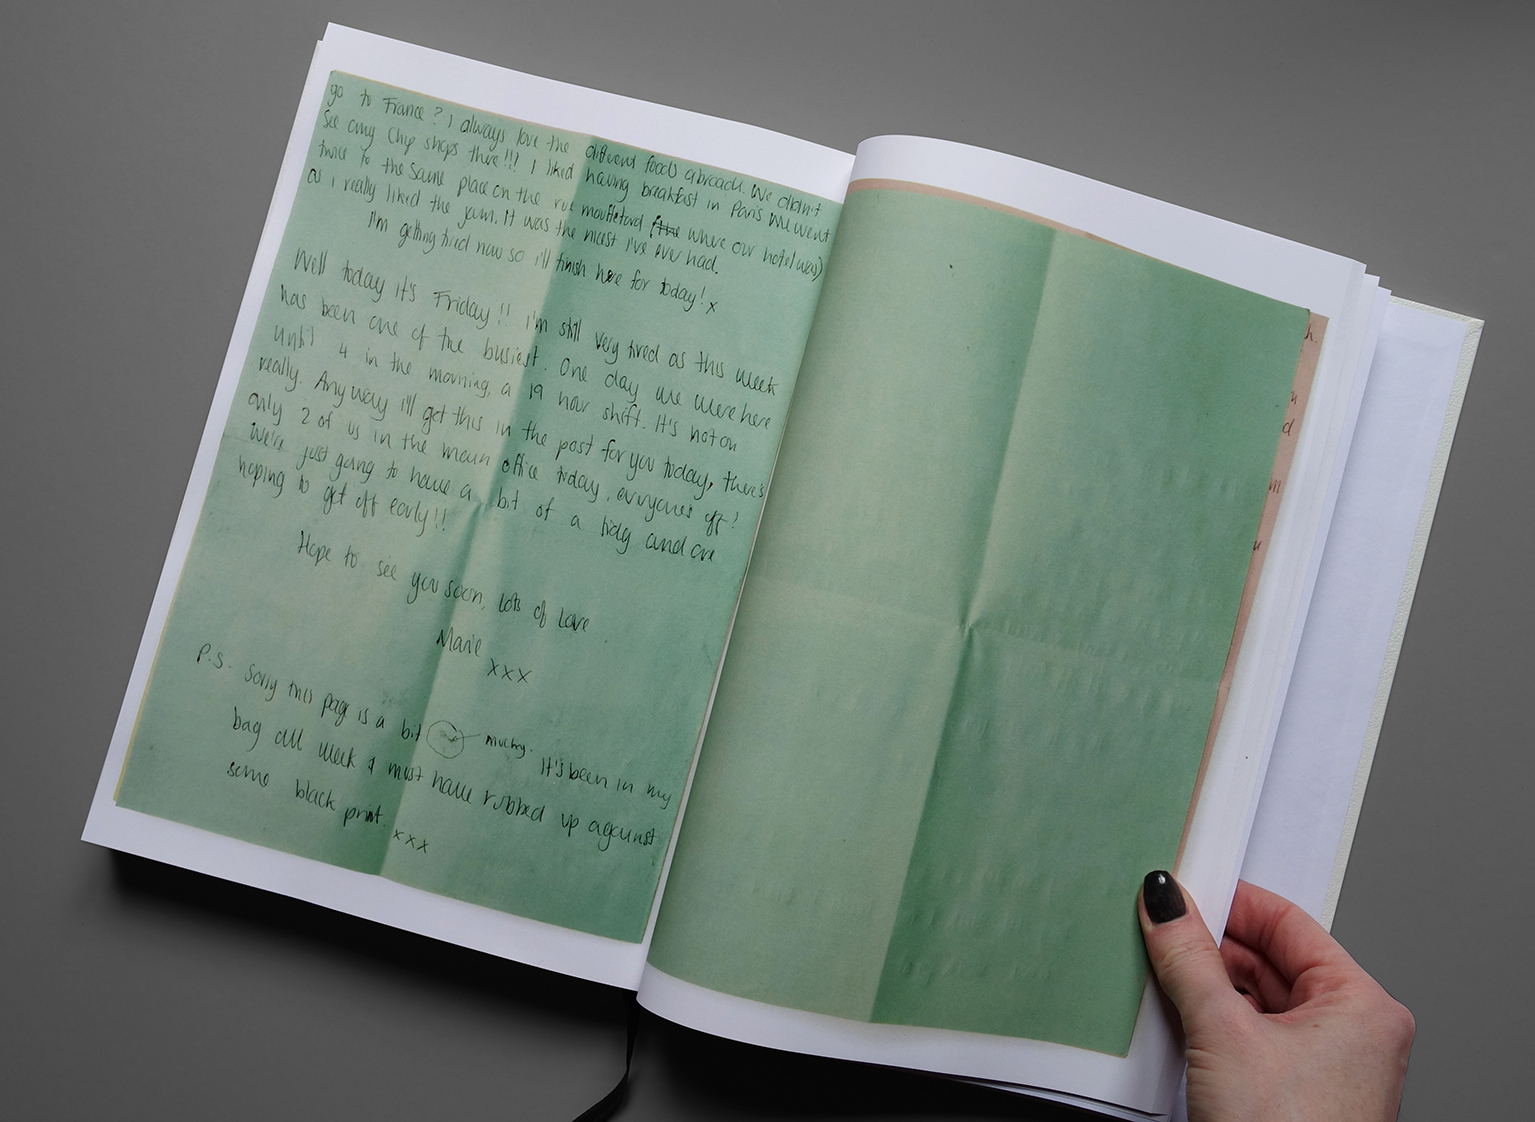 go to France? I always love the different foods abroad. We didn't
see any chip shops there!!! I liked having breakfast in Paris we went
twice to the same place on the rue mouffetard (the where our hotel was)
as I really liked the jam. It was the nicest i've ever had.
I'm getting tired now so i'll finish here for today! x
Well today it's Friday!! I'm still very tired as this week
has been one of the busiest. One day we were here
until 4 in the morning, a 19 hour shift. It's not on
really. Anyway i'll get this in the post for you today, there's
only 2 of us in the main office today, everyones off!
We're just going to have a bit of a tidy and are
hoping to get off early!!
Hope to see you soon, lots of love
Marie
xxx
P.S. Sorry this page is a bit mucky. It's been in my
bag all week & must have rubbed up against
some black print. xxx
h.
u
d
m
u